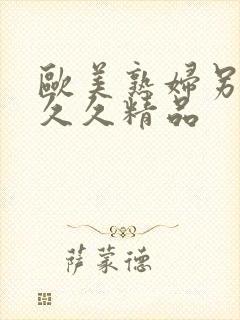 歐美熟婦另
久久精品
萨蒙德